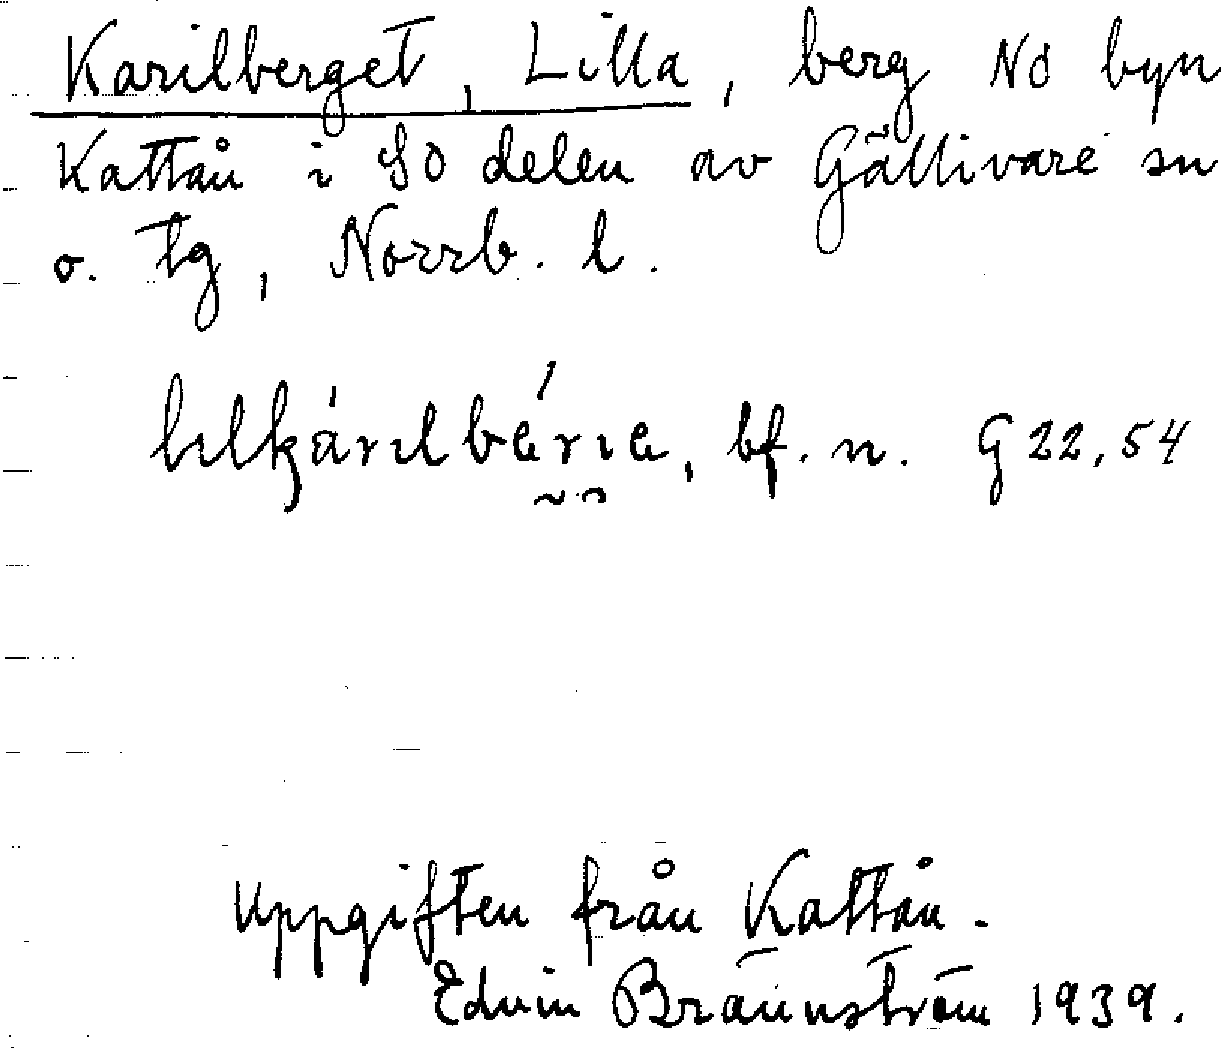 Karilberget, Lilla, berg NO byn
Kattån i SO delen av Gällivare sn
o. tg, Norrb. l.
bf. n. G 22, 54
Uppgiften från Kattån.
Edvin Brännström 1939.